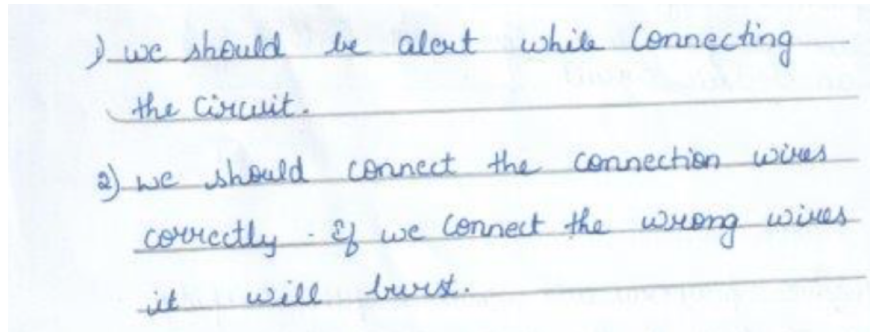 1) we should be alert while connecting
the circuit.
2) we should connect the connection wires
correctly. If we connect the wrong wires
it will burst.